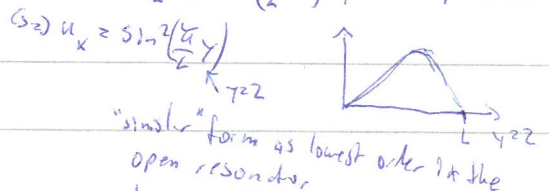 (52) u_x = sin²(π/L y)
y=z
L y=z
"similar" form as lowest order in the
open resonator.